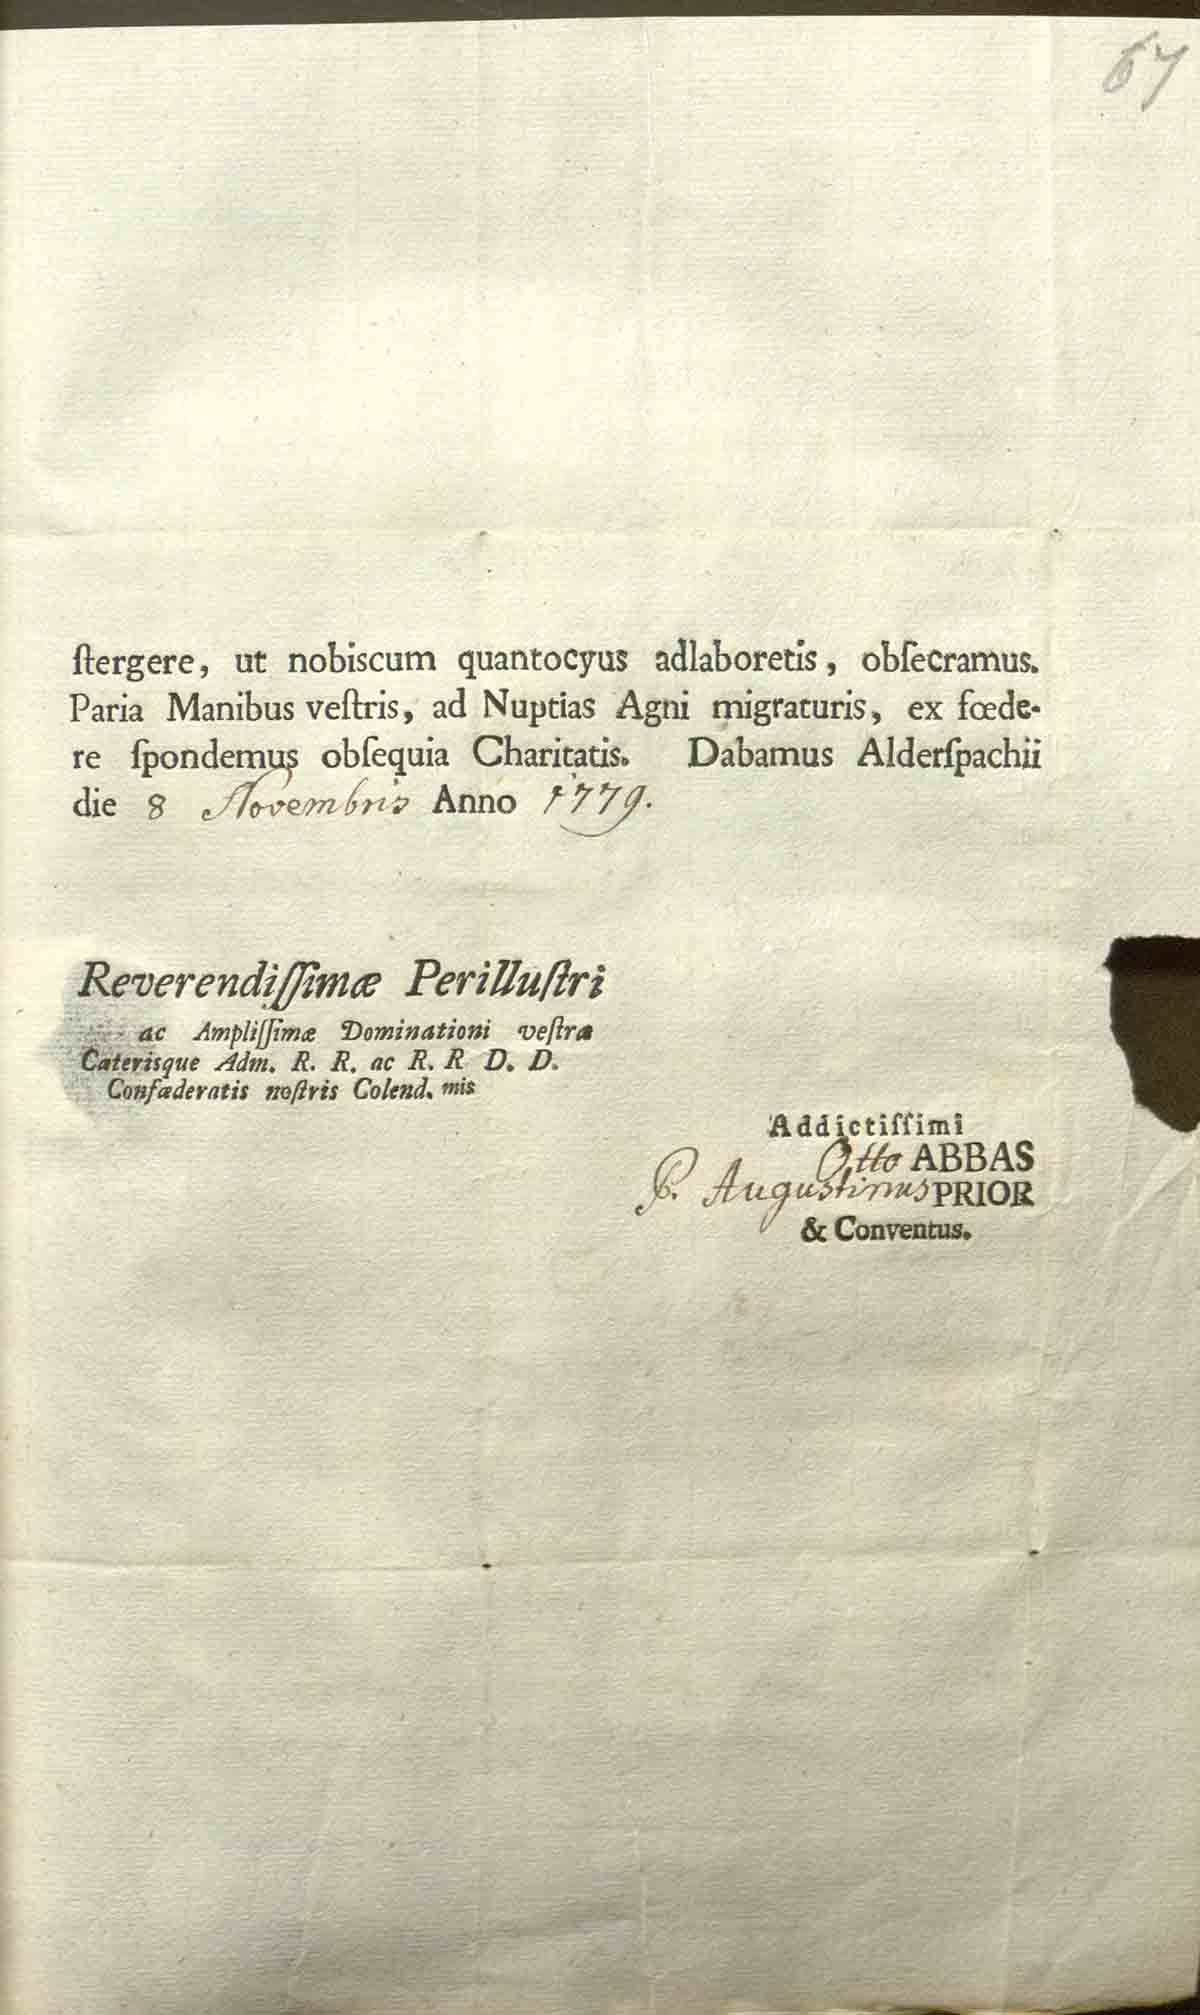 67
ſtergere, ut nobiscum quantocyus adlaboretis, obſecramus.
Paria Manibus veſtris, ad Nuptias Agni migraturis, ex fœde-
re ſpondemus obſequia Charitatis. Dabamus Alderſpachii
die 8 Novembris Anno 1779.
Reverendiſſimæ Perilluſtri
ac Ampliſſimæ Dominationi veſtræ
Cæterisque Adm. R. R. ac R. R D. D.
Confœderatis noſtris Colend. mis
Addictiſſimi
Otto ABBAS
P. Augustinus PRIOR
& Conventus.